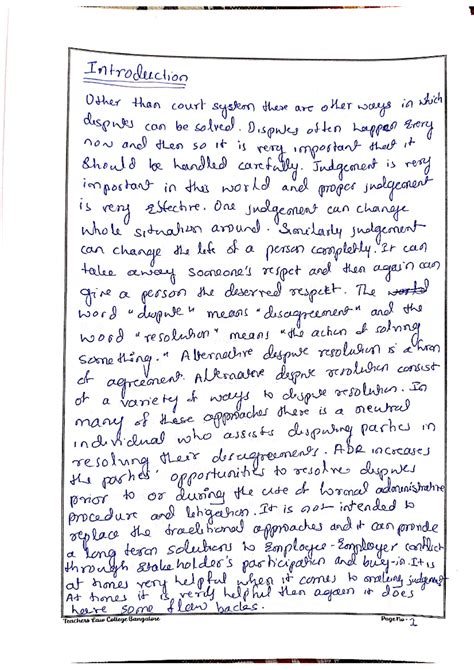 Introduction
Other than court system there are other ways in which
disputes can be solved. Disputes often happen every
now and then so it is very important that it
should be handled carefully. Judgement is very
important in this world and proper judgement
is very effective. One judgement can change
whole situation around. Similarly judgement
can change the life of a person completly. It can
take away someone's respet and then again can
give a person the deserred respekt. The world
word "dispute" means "disagreement" and the
word "resolution" means "the action of solving
something." Alternative dispute resolution is a form
of agreement. Alternative dispute resolution consist
of a variety of ways to dispute resolution. In
many of these approaches there is a neutral
individual who assists disputing parties in
resolving their disagreements. ADR increases
the parties' opportunities to resolve disputes
prior to or during the use of formal administrative
procedure and litigation. It is not intended to
replace the traditional approaches and it can provide
a long term solutions to Employee-Employer conflict
through stakeholder's participation and buy-in. It is
at times very helpful when it comes to judgement
At times it is very helpful then again it does
have some flaw backs.
Teachers Law College Bangalore
Page No - 2